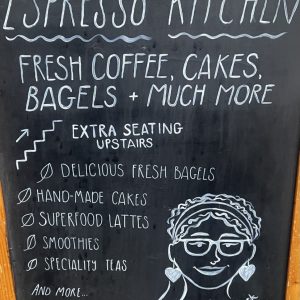 ESPRESSO KITCHEN
FRESH COFFEE, CAKES,
BAGELS + MUCH MORE
EXTRA SEATING
UPSTAIRS
DELICIOUS FRESH BAGELS
HAND-MADE CAKES
SUPERFOOD LATTES
SMOOTHIES
SPECIALITY TEAS
AND MORE...